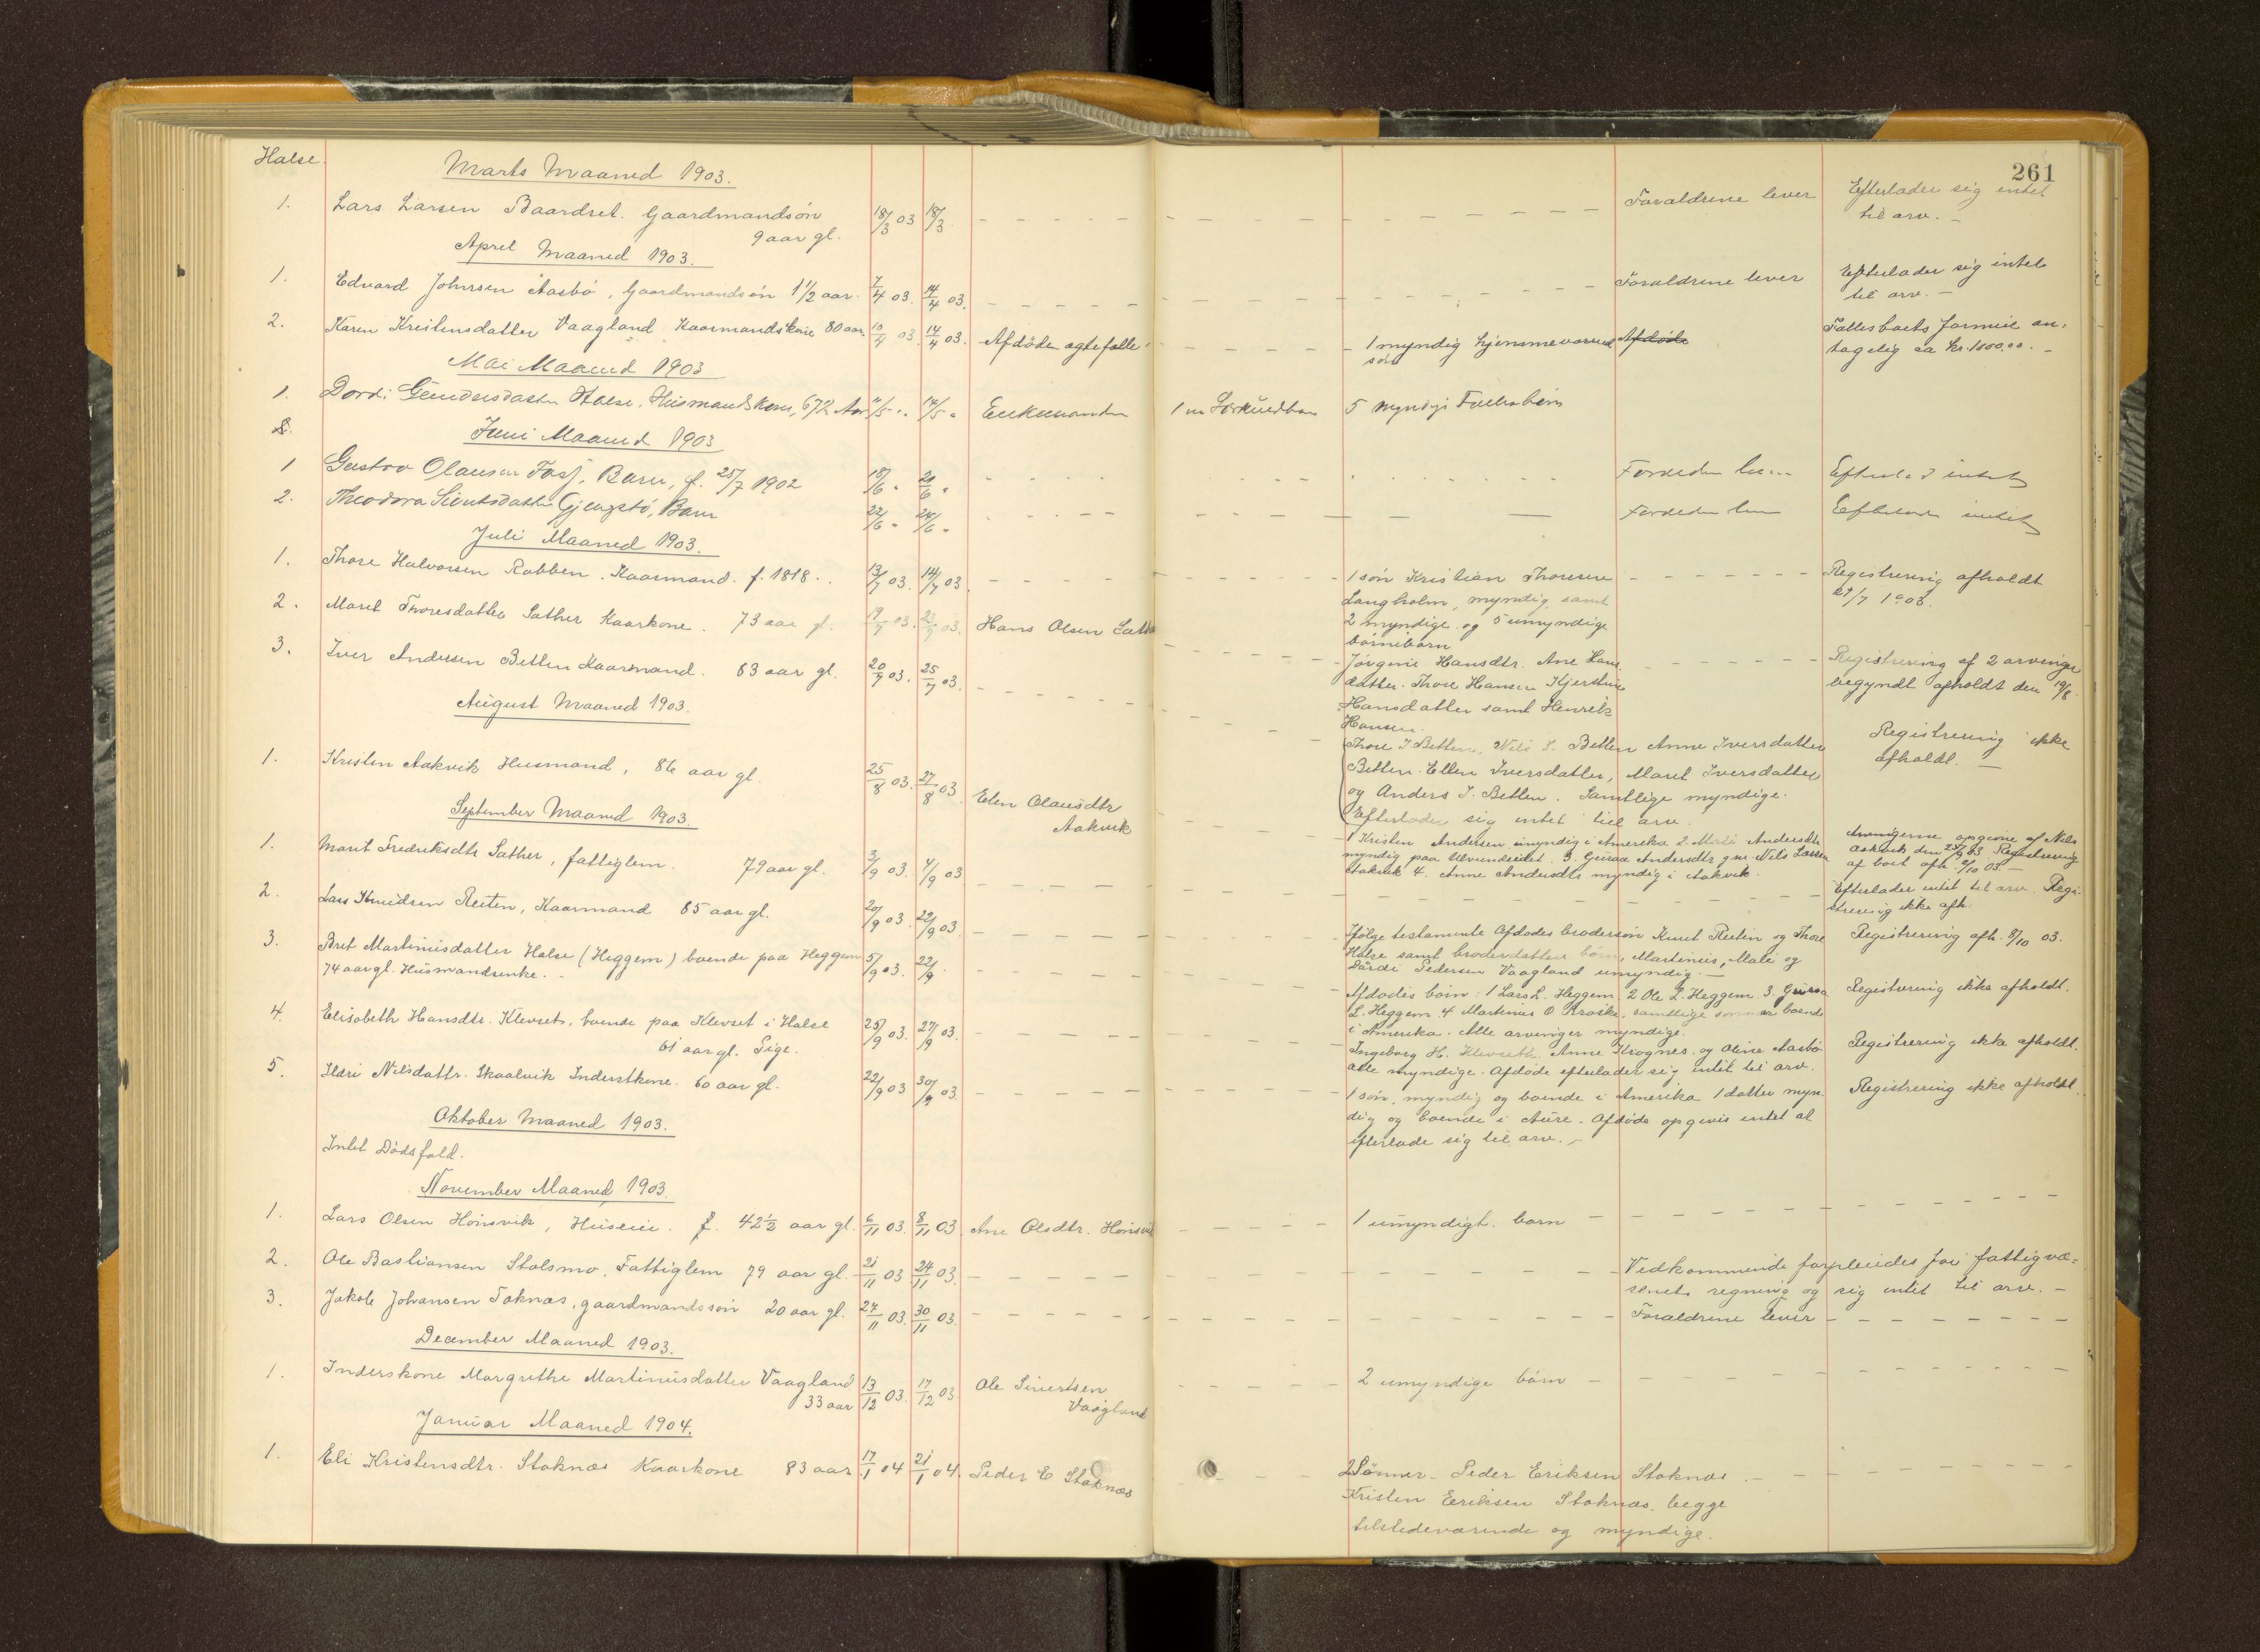 261
Halse.
Marts Maaned 1903.
1. Lars Larsen Baardset. Gaardmandsön 18/3 03 18/3. Foraldrene lever Efterlader sig intet
9 aar gl. til arv. –
April Maaned 1903.
1. Edvard Johnsen Aasbö, Gaardmandsön 1 1/2 aar. 7/4 03. 14/4 03. Foraldrene lever Efterlader sig intet
til arv. –
2. Karen Kristensdatter Vaagland Kaarmandskone 80 aar. 10/4 03. 14/4 03. Afdödes ægtefælle 1 myndig hjemmeværend Afdöde Fællesboets formue an-
sön tagelig ca kr. 1800.00. –
Mai Maaned 1903
1. Dordi Halse. Husmandskone, 11/5 14/5 Enkemanden 1 m 5 myndige
2.
Juni Maaned 1903
1 Gustav Olausen Fosj, Barn, f. 25/7 1902 18/6 21/6 Efterlad intet
2. Theodora Sivertsdatter Gjengstö, Barn 22/6 24/6 Efterlader intet
Juli Maaned 1903.
1. Thore Halvorsen Rabben. Kaarmand. f. 1818. 13/7 03. 14/7 03. 1 sön Kristian Thoresen Registrering afholdt
Langholm, myndig samt 29/7 1903.
2 myndige og 5 umyndige
börnebörn
2. Maret Thoresdatter Sæther Kaarkone. 73 aar gl. 19/7 03. 23/7 03. Hans Olsen Sæther
Jörgine Hansdtr. Ane Hans Registrering af 2 arvinger
datter. Thore Hansen Kjerstine begyndt afholdt den 19/8.
Hansdatter samt Henrik
Hansen.
3. Iver Andersen Betten Kaarmand. 83 aar gl. 20/7 03. 25/7 03.
Thore I Betten, Nils I. Betten Anne Iversdatter Registrering ikke
Betten. Ellen Iversdatter, Maret Iversdatter afholdt. –
og Anders I. Betten. Samtlige myndige.
Efterlader sig intet til arv.
August Maaned 1903.
1. Kristen Aakvik Husmand, 86 aar gl. 25/8 03. 27/8 03. Elen Olausdtr
Aakvik
1 Kristen Andersen, myndig i Amerika 2. Mali Andersdtr Arvingerne opgivne af Nils
myndig paa Ulvundeidet. 3. Guraa Andersdtr g.m. Nils Larsen Aakvik den 25/9 03. Registrering
Aakvik 4. Anne Andersdtr myndig i Aakvik. af boet afh. 2/10 03. –
September Maaned 1903.
1. Marit Fredriksdtr Sæther, fattiglem. 79 aar gl. 3/9 03. 4/9 03 Efterlader intet til arv. Regi-
strering ikke afh.
2. Lars Knudsen Reiten, Kaarmand 85 aar gl. 20/9 03. 22/9 03. Ifölge testamente Afdødes brodersön Knut Reiten og Thore Registrering afh. 8/10 03.
Halse samt broderdatters börn, Martinus, Mali og
Dårdi Pedersen Vaagland umyndig. –
3. Bret Martinusdatter Halse (Heggem) boende paa Heggem 5/9 03. 22/9. Afdødes börn: 1 Lars L. Heggem. 2 Ole L. Heggem. 3. Guraa Registrering ikke afholdt.
74 aar gl. Husmandsenke. – L. Heggem. 4 Martinus O samtlige boende
i Amerika. Alle arvinger myndige.
4. Elisabeth Hansdtr. Klevset, boende paa Klevset i Halse 25/9 03. 27/9 03. Ingeborg H. Klevseth. Anne Krognes. og Oline Aasbö Registrering ikke afholdt.
61 aar gl. Pige. alle myndige. Afdöde efterlader sig intet til arv.
5. Ildri Nilsdattr. Skaalvik Inderstkone. 60 aar gl. 22/9 03 30/9 03. 1 sön, myndig og boende i Amerika 1 datter myn- Registrering ikke afholdt.
dig og boende i Aure. Afdöde opgives intet at
efterlade sig til arv. –
Oktober Maaned 1903.
Intet Dödsfald.
November Maaned 1903.
1. Lars Olsen Hönsvik, Huseier. f. 42 1/2 aar gl. 6/11 03. 8/11 03. Ane Olsdtr. Hönsvik 1 umyndigt. barn
2. Ole Bastiansen Stolsmo. Fattiglem 79 aar gl. 21/11 03 24/11 03. Vedkommende forpleiedes for fattigvæ-
senets regning og sig intet til arv. –
3. Jakob Johansen Toknæs, gaardmandssön 20 aar gl. 27/11 03. 30/11 03. Foraldrene lever
December Maaned 1903.
1. Inderskone Margrethe Martinusdatter Vaagland 13/12 03. 17/12 03 Ole Sivertsen 2 umyndige börn
33 aar Vaagland
Januar Maaned 1904.
1. Eli Kristensdtr. Stoknæs Kaarkone 83 aar. 17/1 04 21/1 04. Peder E Stoknæs 2 Sönner – Peder Eriksen Stoknæs.
Kristen Eriksen Stoknæs, begge
tilstedeværende og myndige.